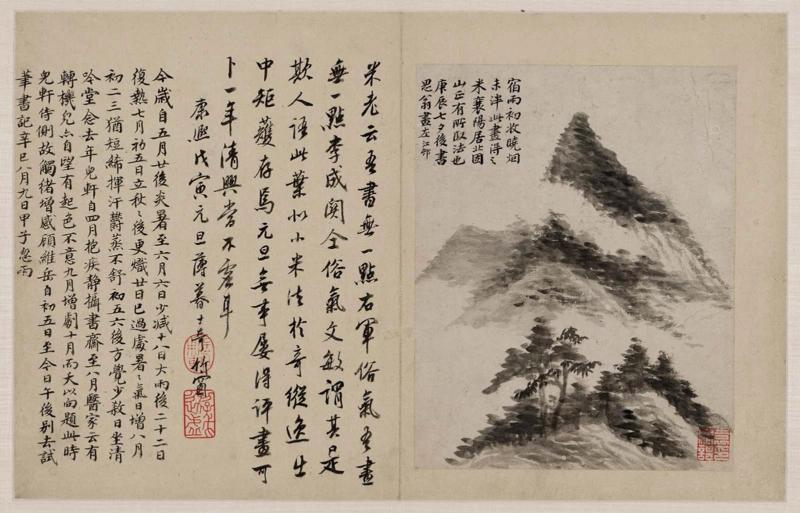 宿雨初收曉烟
未泮此畫得之
米襄陽居北固
山正有所取法也
庚辰七夕後書
思翁畫左江邨
米老云吾書無一點右軍俗氣吾畫
無一點李成関仝俗氣文敏謂其只是
欺人語此葉似小米法於奇縱逸出
中矩矱存焉元旦無事屢得評畫可
卜一年清興當不虛耳
康熙戊寅元旦薄暮士奇竹窗
今歲自五月廿後炎暑至六月六日少减十八日大雨後二十二日
復熱七月初五日立秋秋後更熾廿日已過處暑暑氣日增八月
初二三猶短絺揮汗欝蒸不舒初五六後方覺少殺日坐清
吟堂念去年兒軒自四月抱疾静攝書齋至八月醫家云有
轉機兒亦自望有起色不意九月增劇十月而夭以向題此時
兒軒侍側故觸緒增感顧維岳自初五日至今日午後别去試
筆書記辛巳八月九日甲子忽雨